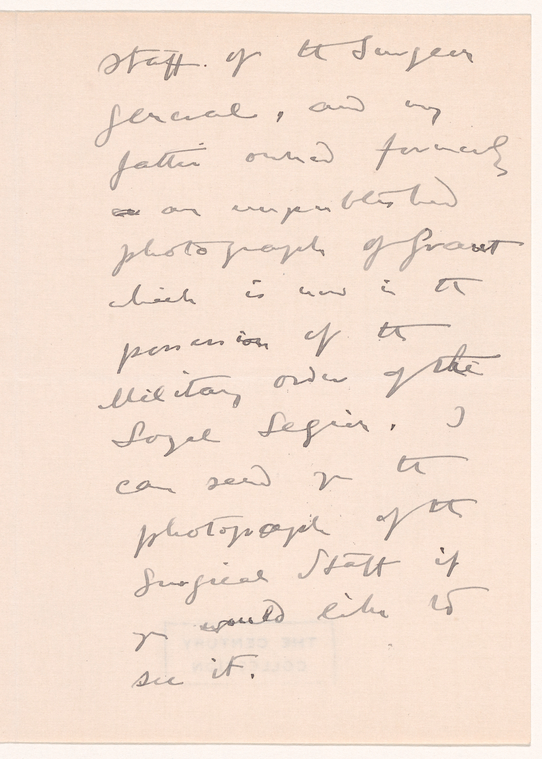 staff. of the Surgeon
General, and my
father owned formerly
an unpublished
photograph of Grant
which is now in the
possession of the
Military order of the
Loyal Legion. I
can send you the
photograph of the
Surgical Staff if
you would like to
see it.
THE CENTURY
COLLECTION